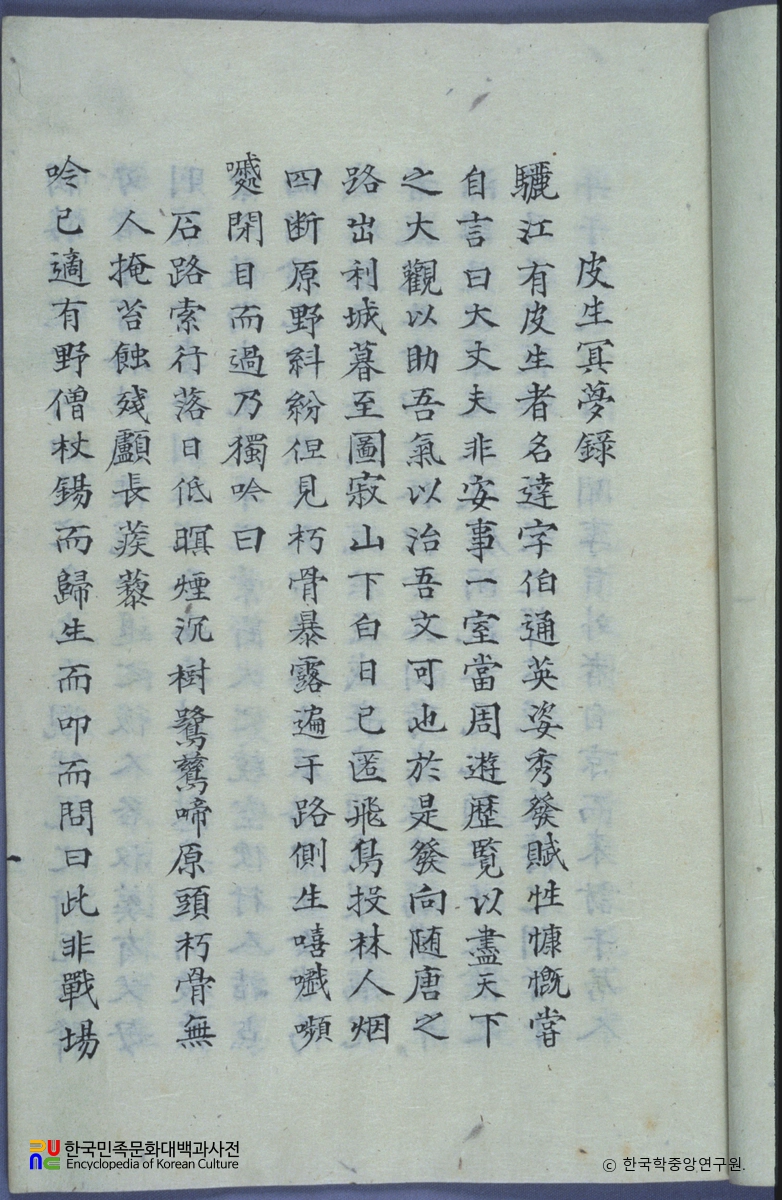 皮生冥夢錄
驪江有皮生者名達字伯通英姿秀發賦性慷慨嘗
自言曰大丈夫非安事一室當周遊歷覽以盡天下
之大觀以助吾氣以治吾文可也於是發向隨唐之
路出利城暮至圖寂山下白日已匿飛鳥投林人烟
四断原野糾紛但見朽骨暴露遍于路側生嘻嚱嚬
嘁閉目而過乃獨吟曰
石路索行落日低暝煙沉樹鵞鶿啼原頭朽骨無
人掩苔蝕殘顱長蒺藜
吟已適有野僧杖錫而歸生而叩而問曰此非戰場
한국민족문화대백과사전
Encyclopedia of Korean Culture
ⓒ 한국학중앙연구원.